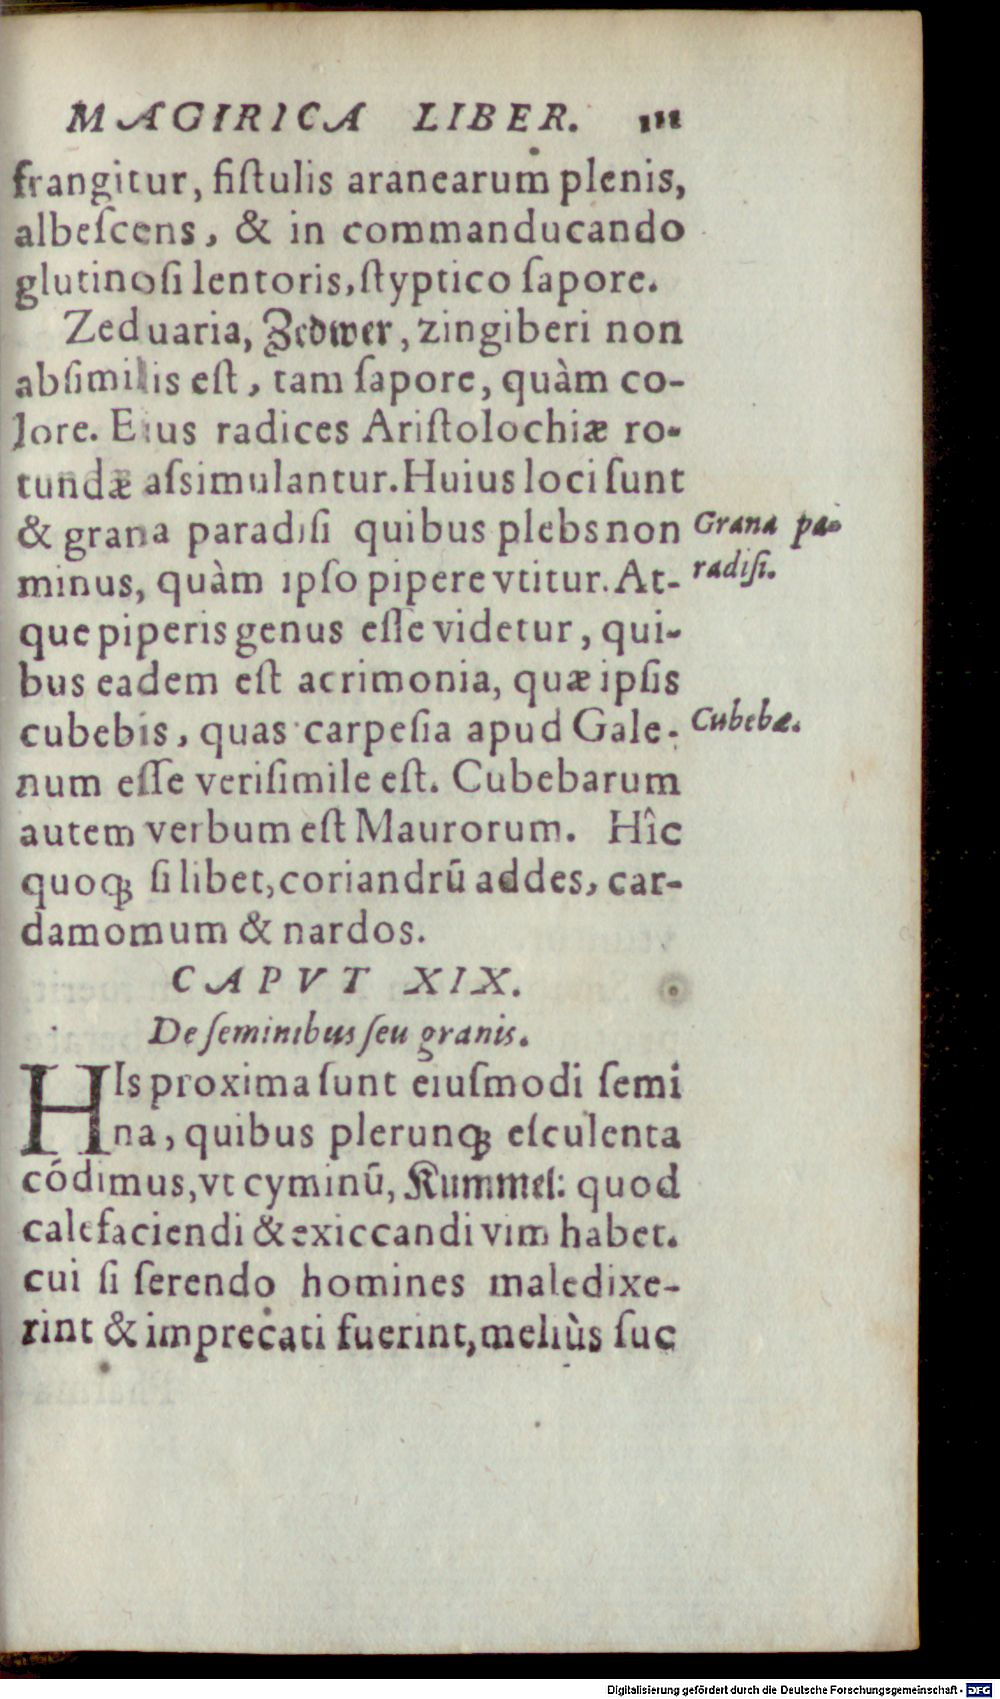 MAGIRICA LIBER. 111
frangitur, fiſtulis aranearum plenis,
albeſcens, & in commanducando
glutinoſi lentoris, ſtyptico ſapore.
Zeduaria, Zedwer, zingiberi non
abſimilis eſt, tam ſapore, quàm co-
lore. Eius radices Ariſtolochiæ ro-
tundæ aſsimulantur. Huius loci ſunt
& grana paradiſi quibus plebs non
Grana pa-
minus, quàm ipſo pipere vtitur. At-
radiſi.
que piperis genus eſſe videtur, qui-
bus eadem eſt acrimonia, quæ ipſis
cubebis, quas carpeſia apud Gale-
Cubebæ.
num eſſe veriſimile eſt. Cubebarum
autem verbum eſt Maurorum. Hîc
quoqꝫ ſi libet, coriandrū addes, car-
damomum & nardos.
CAPVT XIX.
De ſeminibus ſeu granis.
HIs proxima ſunt eiuſmodi ſemi
na, quibus plerunqꝫ eſculenta
códimus, vt cyminū, Kummel: quod
calefaciendi & exiccandi vim habet.
cui ſi ſerendo homines maledixe-
rint & imprecati fuerint, meliùs ſuc
Digitalisierung gefördert durch die Deutsche Forschungsgemeinschaft - DFG